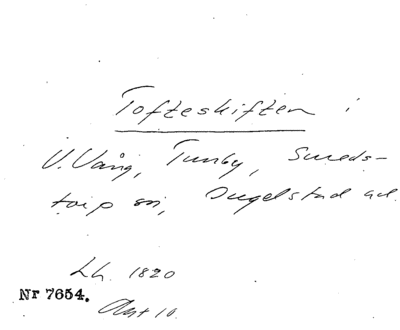 Tofteskiften i
V. Vång, Tunby, Smeds-
torp sn, Ingelstad hd.
Lh. 1820
Nr 7654.
Akt 10.